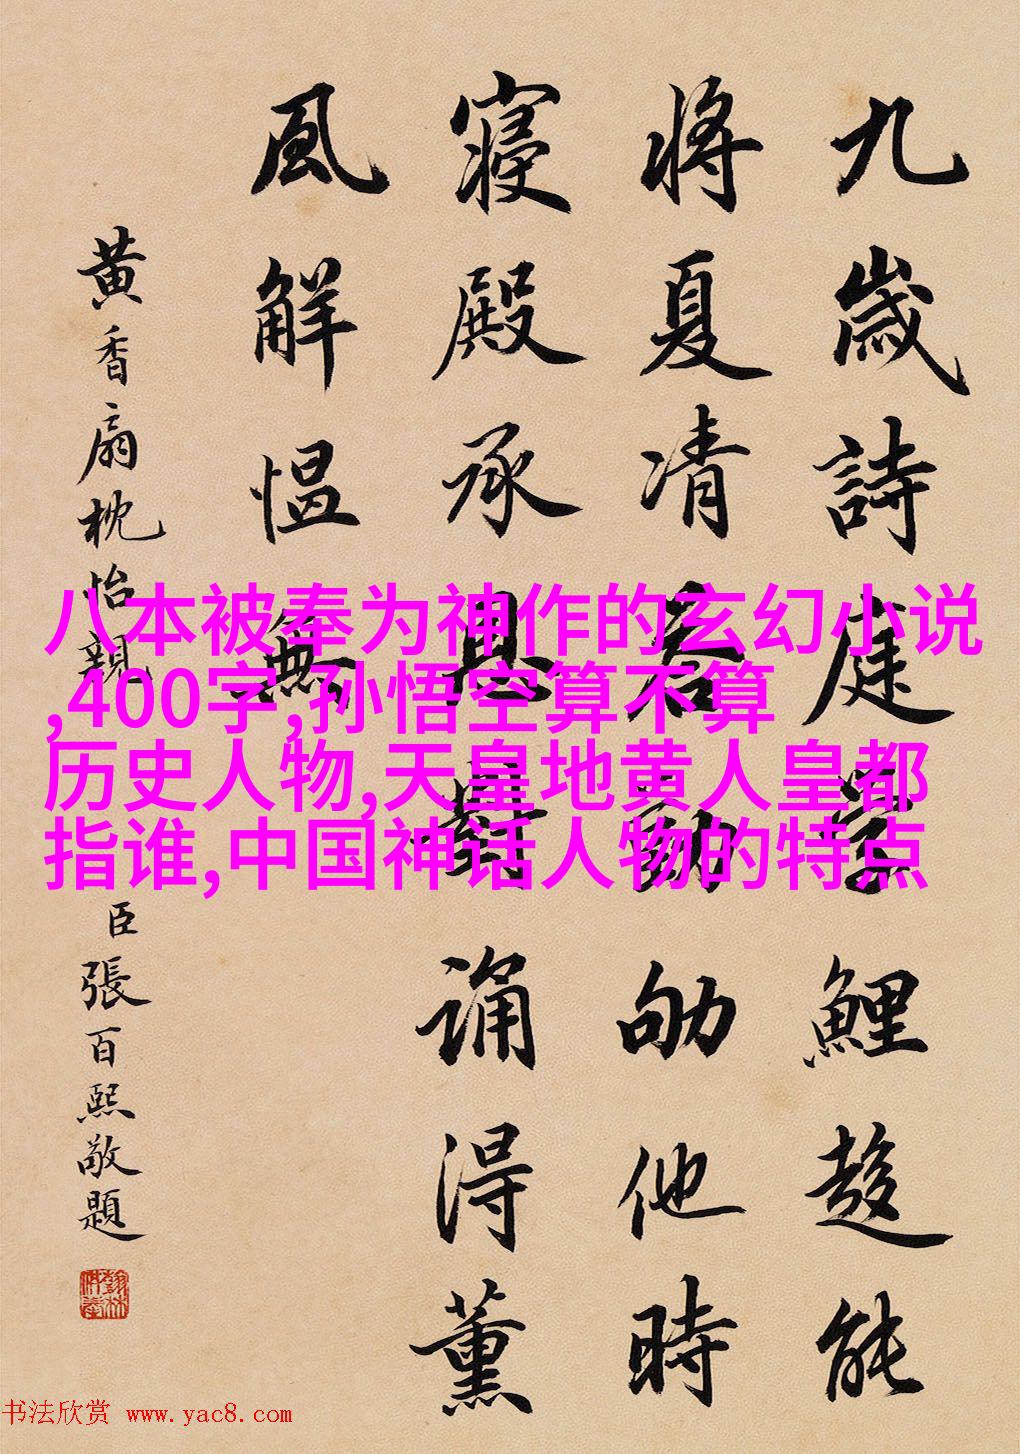 九歲詩庭學鯉趍能
將夏凊君勤劬他時
寢殿承恩對誦得薰
風解愠無
黃香扇枕怡親
臣張百熙敬題
八本被奉为神作的玄幻小说
,400字,孙悟空算不算
历史人物,天皇地黄人皇都
指谁,中国神话人物的特点
书法欣赏 www.yac8.com